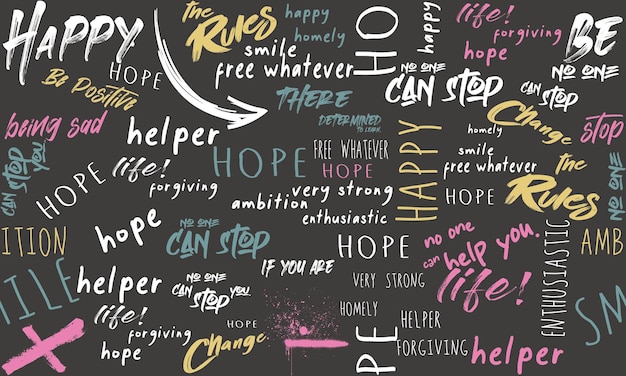 HAPPY
the
Rules
happy
homely
smile
free whatever
HO
happy
life!
forgiving
hope
BE
NO ONE
HOPE
Be Positive
THERE
NO ONE
CAN STOP
CAN STOP
Change
being sad
helper
DETERMINED
TO LEARN
homely
stop
CAN STOP
YOU
HOPE
life!
forgiving
HOPE
FREE WHATEVER
HOPE
HAPPY
smile
free whatever
the
Rules
CAN STOP
NO ONE
very strong
ambition
enthusiastic
HOPE
hope
NO ONE
CAN STOP
HOPE
no one
can help you.
life!
ENTHUSIASTIC
AMB
ITION
IF YOU ARE
VERY STRONG
SM
ILE
helper
NO ONE
CAN STOP YOU
life!
forgiving
hope
HOPE
Change
HOMELY
PE
HELPER
FORGIVING
helper